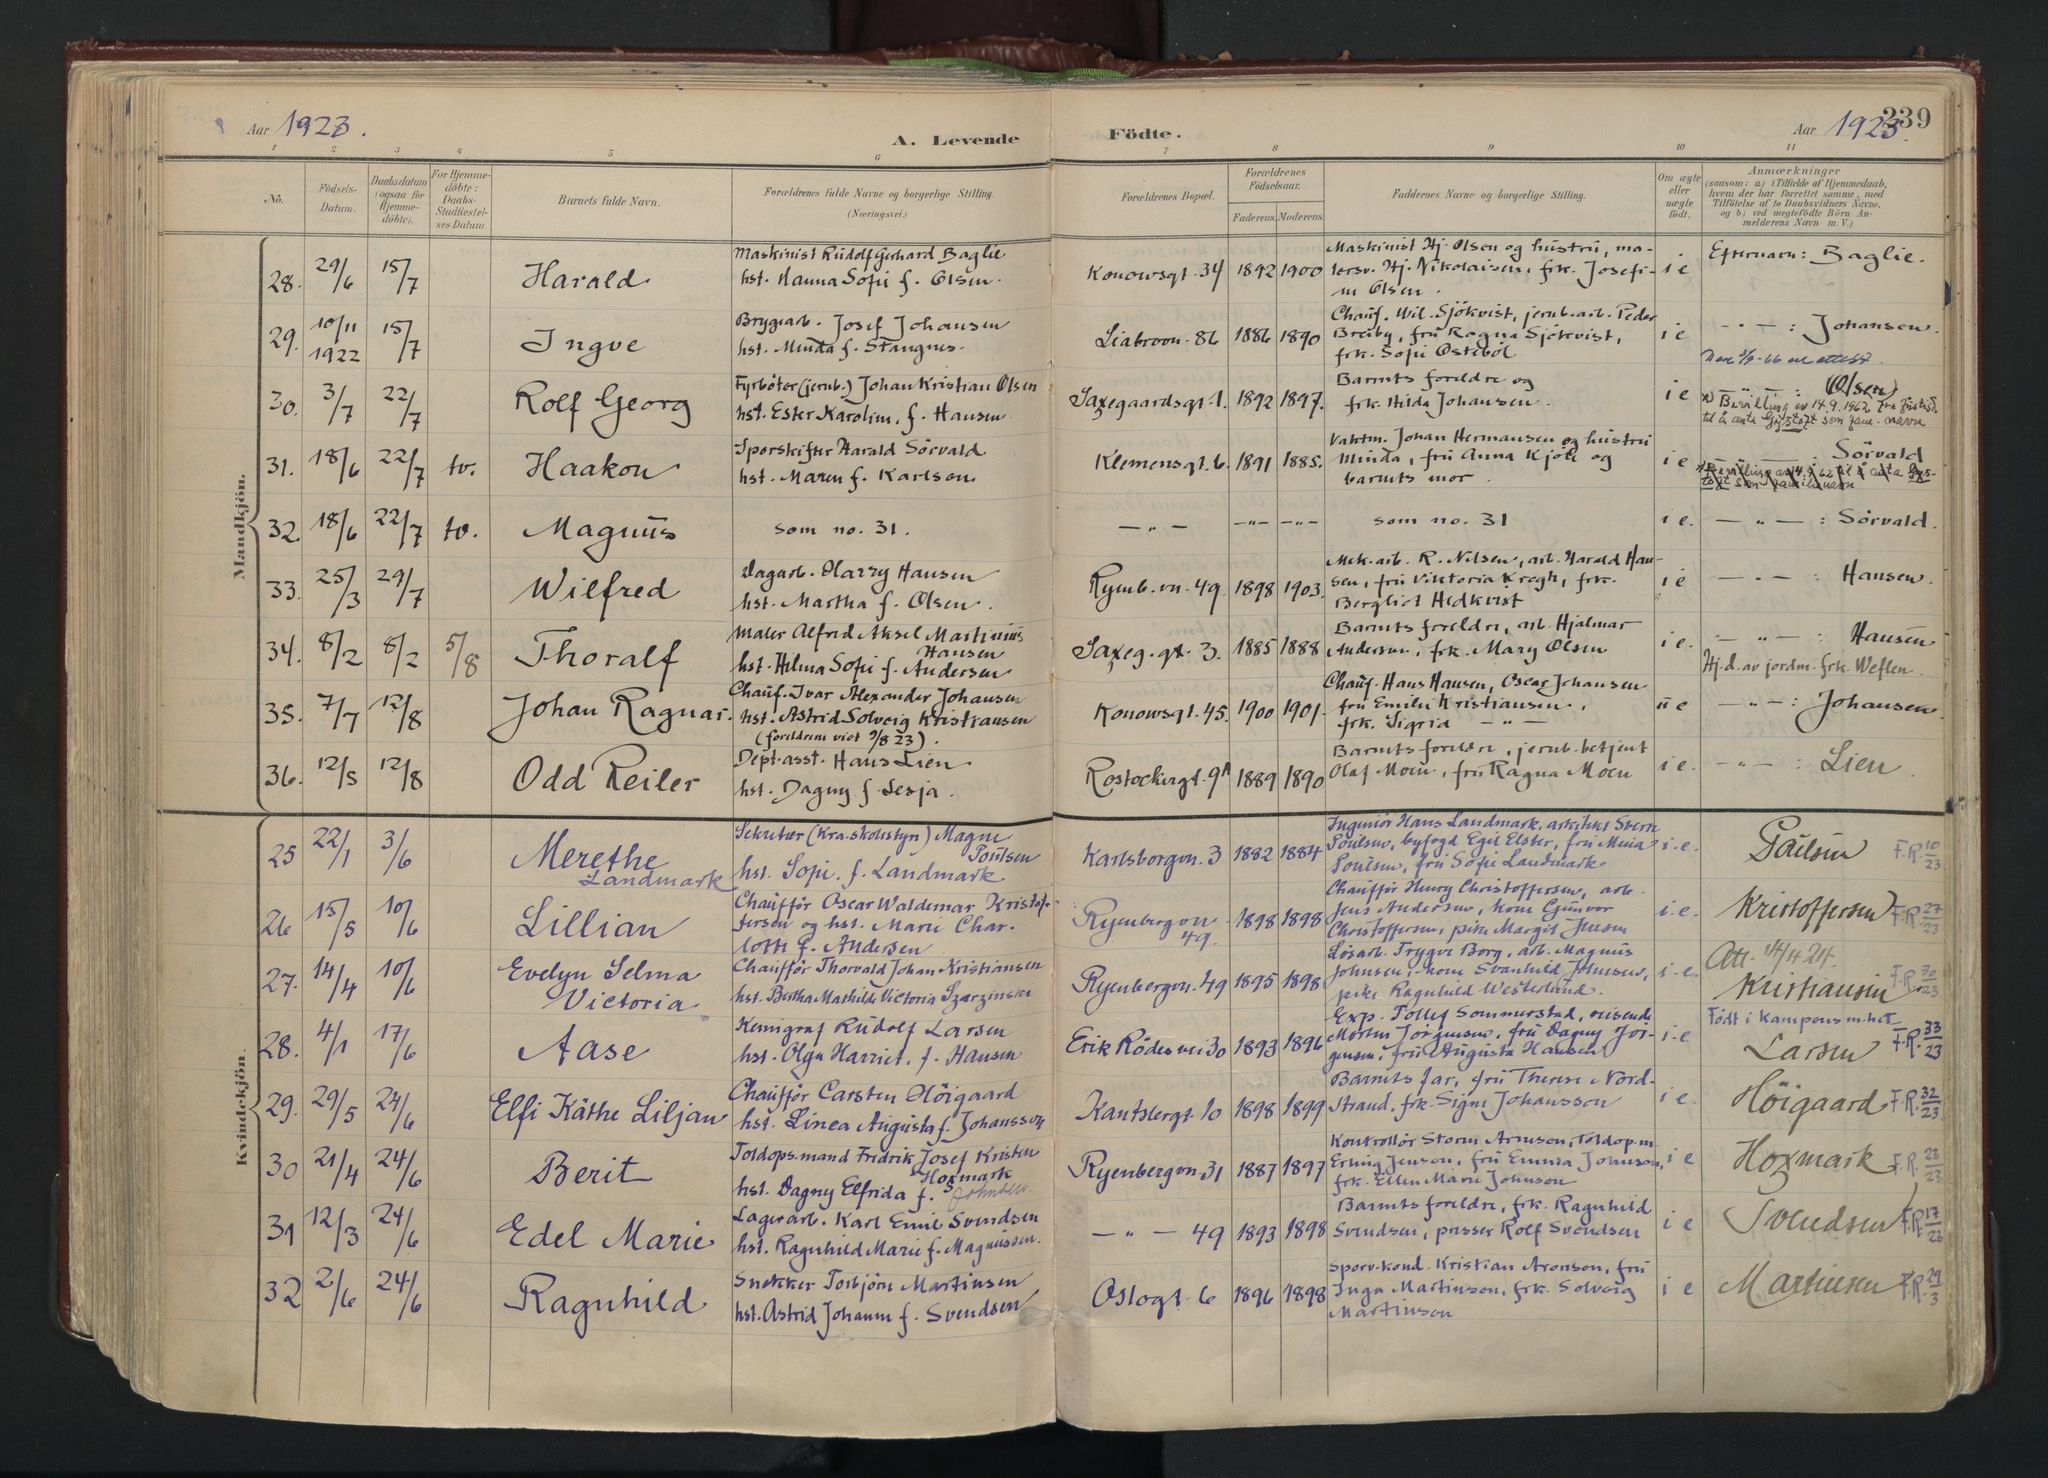 Aar 1923.
A. Levende Födte.
Aar 1923.
239
1 2 3 4 5 6 7 8 9 10 11
No.
Födsels-
Datum.
Daabsdatum
(ogsaa for
Hjemme-
döbte).
For Hjemme-
döbte:
Daabs-
Stadfæstel-
ses Datum.
Barnets fulde Navn.
Forældrenes fulde Navne og borgerlige Stilling.
(Næringsvei.)
Forældrenes Bopæl.
Forældrenes
Födselsaar.
Faderens. Moderens.
Faddernes Navne og borgerlige Stilling.
Om ægte
eller
uægte
födt.
Anmærkninger
(saasom: a) i Tilfælde af Hjemmedaab,
hvem der har forrettet samme, med
Tilföielse af to Daabsvidners Navne,
og b) ved uægtefödte Börn An-
melderens Navn m. V.)
Mandkjön.
28. 29/6 15/7 Harald
Maskinist Rudolf Gerhard Baglie
hst. Hanna Sofie f. Olsen.
Konowsgt. 34 1892 1900
Maskinist Hj. Olsen og hustru, ma-
Hj. Nikolaisen, frk. Josefi-
ne Olsen.
i e
Efternavn: Baglie.
29. 10/11 1922 15/7 Ingve
Bryggearb. Josef Johansen
hst. Minda f. Stangnes.
Liabrovn. 86 1886 1890
Chauf. Wil. Sjökvist, jernb.arb. Peder
Breiby, fru Ragna Sjökvist,
frk. Sofie Östeböl
i e
— " — : Johansen.
30. 3/7 22/7 Rolf Georg
Fyrböter (jernb.) Johan Kristian Olsen
hst. Ester Karoline, f. Hansen.
Saxegaardsgt. 1. 1892 1897.
Barnets foreldre og
frk. Hilda Johansen.
i e
— " — : (Olsen)
x) Bevilling av 14.9.1962 fra
til å anta Gystoft som fam. navn
31. 18/6 22/7 tv. Haakon
Sporskifter Harald Sörvald
hst. Maren f. Karlsen.
Klemensgt. 6. 1891 1885.
Vaktm. Johan Hermansen og hustru
Minda, fru Anna Kjöle og
barnets mor.
i e
Sörvald
32. 18/6 22/7 tv. Magnus
som no. 31.
— " — — " — — " —
som no. 31
i e.
— " — : Sörvald.
33. 25/3 29/7 Wilfred
Dagarb. Harry Hansen
hst. Martha f. Olsen.
Ryenb. vn. 49. 1898 1903.
Mek. arb. R. Nilsen, arb. Harald Han-
sen, fru Viktoria Krogh, frk.
Bergliot Hedkvist
i e
— " — : Hansen.
34. 8/2 8/2 5/8 Thoralf
Maler Alfred Aksel Martinius
Hansen
hst. Hilma Sofie f. Andersen
Saxeg. gt. 3. 1885 1888
Barnets foreldre, arb. Hjalmar
Andersen, frk. Mary Olsen
i e.
— " — : Hansen
Hj.d. av jordm. frk. Weflen.
35. 7/7 12/8 Johan Ragnar.
Chauf. Ivar Alexander Johansen
hst. Astrid Solveig Kristiansen
(foreldrene viet 9/8 23).
Konowsgt. 45. 1900 1901.
Chauf. Hans Hansen, Oscar Johansen
fru Emilie Kristiansen,
frk. Sigrid — " —
u e
— " — : Johansen.
36. 12/5 12/8 Odd Reiler
Dept. asst. Hans Lien
hst. Dagny f. Lesja.
Rostockergt. 9A 1889 1890
Barnets foreldre, jernb. betjent
Olaf Moen, fru Ragna Moen
i e.
— " — : Lien.
Kvindekjön.
25 22/1 3/6 Merethe
Landmark
Sekretær (Kra. skolestyre) Magne
Poulsen
hst. Sofie. f. Landmark
Karlsborgvn. 3 1882 1884
Ingeniör Hans Landmark, arkitekt Sverre
Poulsen, byfogd Egil Elster, fru Mina
Poulsen, fru Sofie Landmark
i. e.
Poulsen F.R. 10/23
26 15/5 10/6 Lillian
Chaufför Oscar Waldemar Kristof-
fersen og hst. Marie Char-
lotte f. Andersen
Ryenbergvn
49. 1898 1898
Chaufför Henry Christoffersen, arb.
Jens Andersen, kone Gunvor
Christoffersen, pike Margit Jensen
i. e.
Kristoffersen F.R. 27/23
27. 14/4 10/6 Evelyn Selma
Victoria
Chaufför Thorvald Johan Kristiansen
hst. Bertha Mathilde Victoria Szarzinski
Ryenbergvn. 49 1895 1898
Lösarb. Trygve Borg, arb. Magnus
Johnsen, kone Svanhild Johnsen,
pike Ragnhild Westerlund.
i. e.
Att. 14/4 24.
Kristiansen F.R. 30/23
28. 4/1 17/6 Aase
Kemigraf Rudolf Larsen
hst. Olga Harriet, f. Hansen
Erik Rödes vei 30 1893 1896
Exp. Tollef Sommerstad, reisende
Morten Jörgensen, fru Dagny Jör-
gensen, fru Augusta Hansen
i. e
Födt i Kampens m.het
Larsen F.R. 33/23
29. 29/5 24/6 Elfi Käthe Liljan
Chaufför Carsten Höigaard
hst. Linea Augusta f. Johansson
Kantslergt. 10 1898 1899
Barnets far, fru Therese Nord-
Strand, frk. Signe Johansson
i e.
Höigaard F.R. 32/23
30 21/4 24/6 Berit
Toldops.mand Fredrik Josef Kristen
Hoxmark
hst. Dagny Elfrida f. Johnsen
Ryenbergvn. 31 1887 1897
Kontrollör Storm Arnesen, Toldop.m.
Erling Jensen, fru Emma Johnson,
frk. Ellen Marie Johnson
i e
Hoxmark F.R. 23/23
31 12/3 24/6 Edel Marie
Lagerarb. Karl Emil Svendsen
hst. Ragnhild Marie f. Magnussen.
— " — 49 1893 1898
Barnets foreldre, frk. Ragnhild
Svendsen, presser Rolf Svendsen
i e
Svendsen F.R. 17/23
32 2/6 24/6 Ragnhild
Snekker Torbjörn Martinsen
hst. Astrid Johanne f. Svendsen
Oslogt. 6 1896 1898
Sporv.kond. Kristian Aronson, fru
Inga Martinson, frk. Solveig
Martinson
i e
Martinsen F.R. 29/3